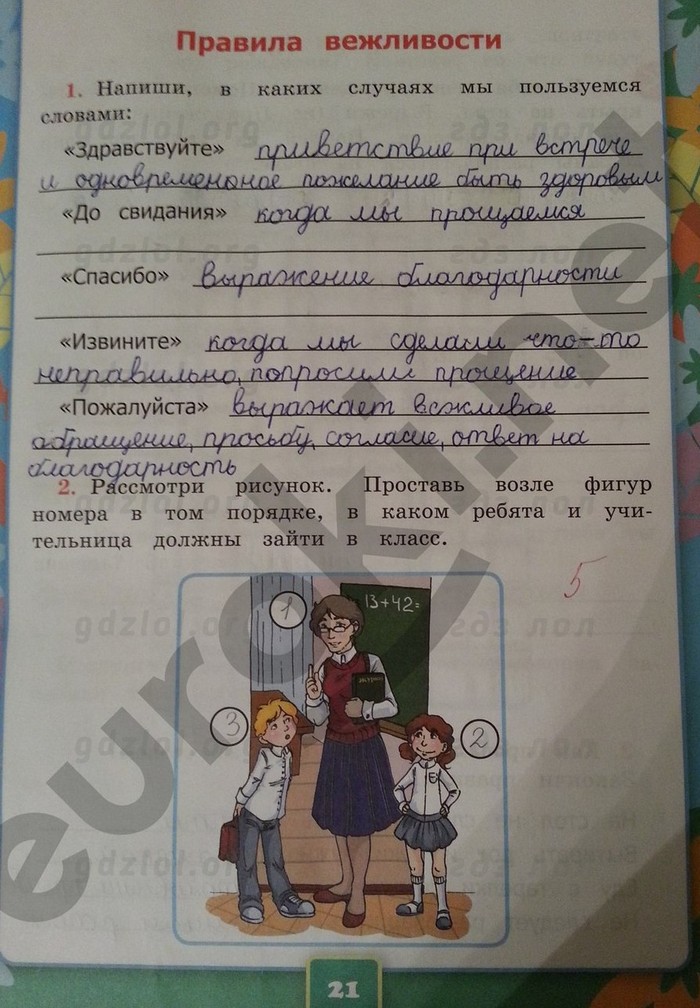 Правила вежливости
1. Напиши, в каких случаях мы пользуемся
словами:
«Здравствуйте» приветствие при встрече
и одновременное пожелание быть здоровым
«До свидания» когда мы прощаемся
«Спасибо» выражение благодарности
«Извините» когда мы сделали что-то
неправильно, попросили прощение
«Пожалуйста» выражает вежливое
обращение, просьбу, согласие, ответ на
благодарность
2. Рассмотри рисунок. Проставь возле фигур
номера в том порядке, в каком ребята и учи-
тельница должны зайти в класс.
5
1
13+42=
3
2
21
euroki.net
gdzlol.org
гдз лол
gdzlol.org
gdzlol.org
гдз лол
gdzlol.org
gdzlol.org